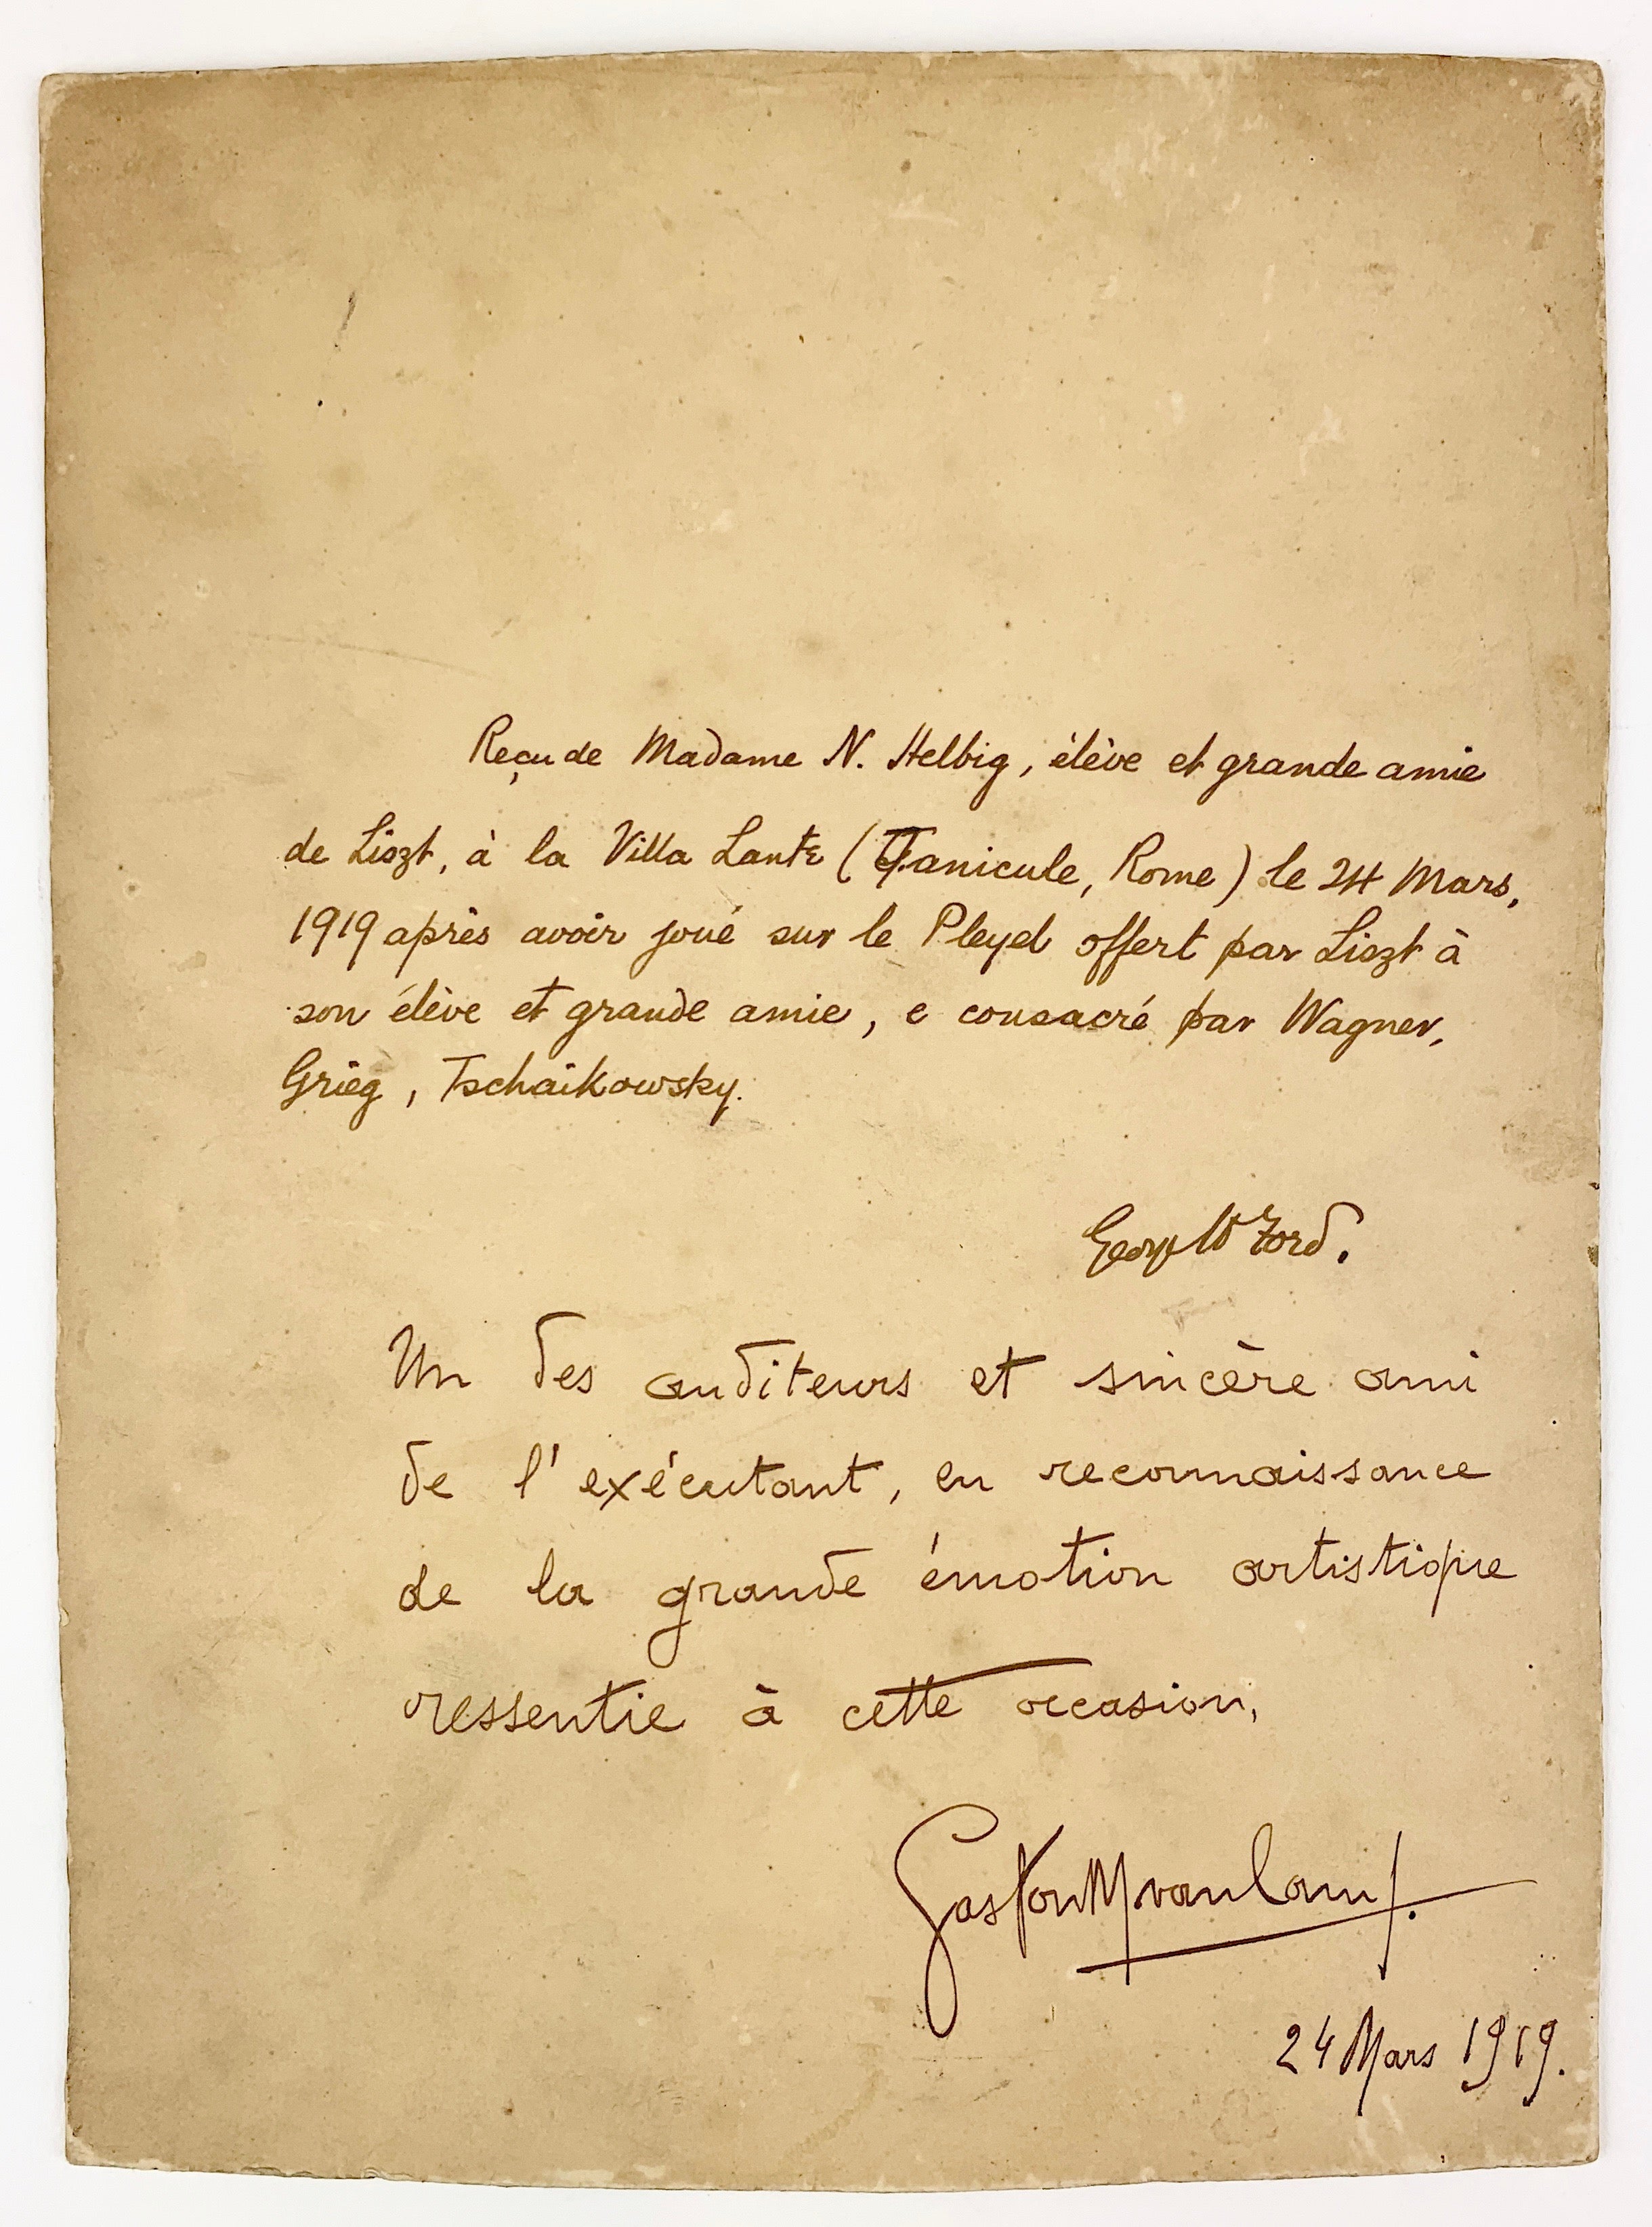 Reçu de Madame N. Helbig, élève et grande amie
de Liszt, à la Villa Lante (Janicule, Rome) le 24 Mars,
1919 après avoir joué sur le Pleyel offert par Liszt à
son élève et grande amie, e consacré par Wagner,
Grieg, Tschaikowsky.
Un des auditeurs et sincère ami
de l'exécutant, en reconnaissance
de la grande émotion artistique
ressentie à cette occasion,
Gaston
24 Mars 1919.